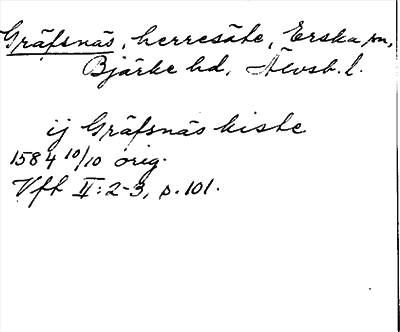 Gräfsnäs, herresäte, Erska sn,
Bjärke hd, Älvsb. l.
ij Gräfsnäs kiste
1584 10/10 orig.
Vfh II:2-3, p. 101.